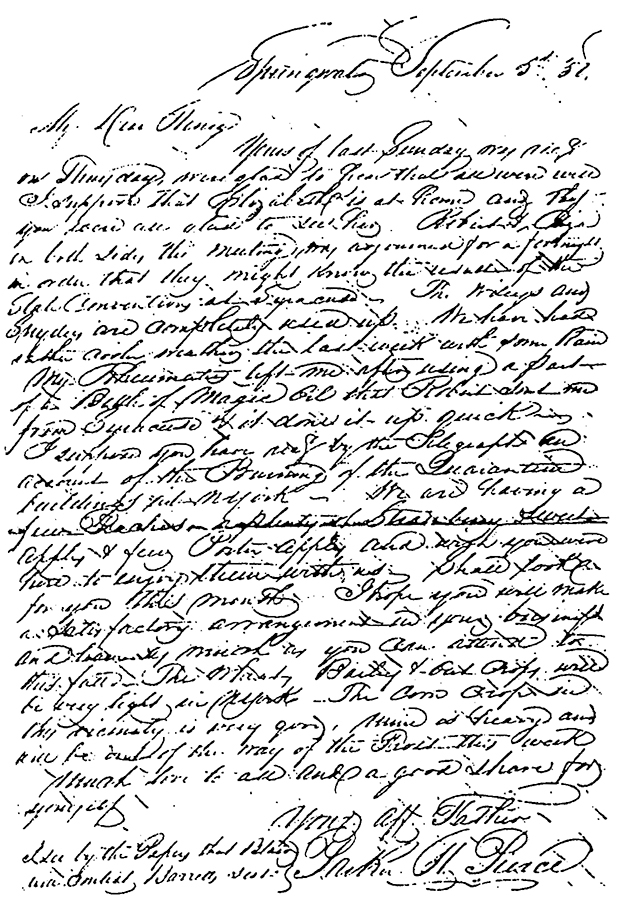 Springwater September 5th 58.
My Dear Henry
Yours of last Sunday was recd
on Thursday, were glad to hear that all were well
I suppose that Elizabeth is at home and they
you were all glad to see her. Robert J,
in both sides the meeting was adjourned for a fortnight
in order that they might know the result of the
State Conventions at Syracuse. The and
are completely used up. We have had
rather cooler weather the last week with some Rain
My Rheumatis left me after using a part
of a Bottle of Magic Oil that Robert sent me
from Syracuse & it done it up quick
I suppose you have recd by the Telegraph an
account of the Burning of the Quarantine
buildings at NYork - We are having a
few Peaches a plenty of Strawberry Sweet
apples & few Porter apples and wish you were
here to enjoy them with us. Shall look
for you this month. I hope you will make
a satisfactory arrangement in your business
and learn as much as you can attend to
this fall. The Wheat, Barley & Oat Crops will
be very light in NYork - The Corn Crop in
this vicinity is very good, mine is heavy and
will be out of the way of the Frost this week
Much love to all and a good share for
yourself
Your Aff Father
Parker H. Pierce
I see by the Papers that